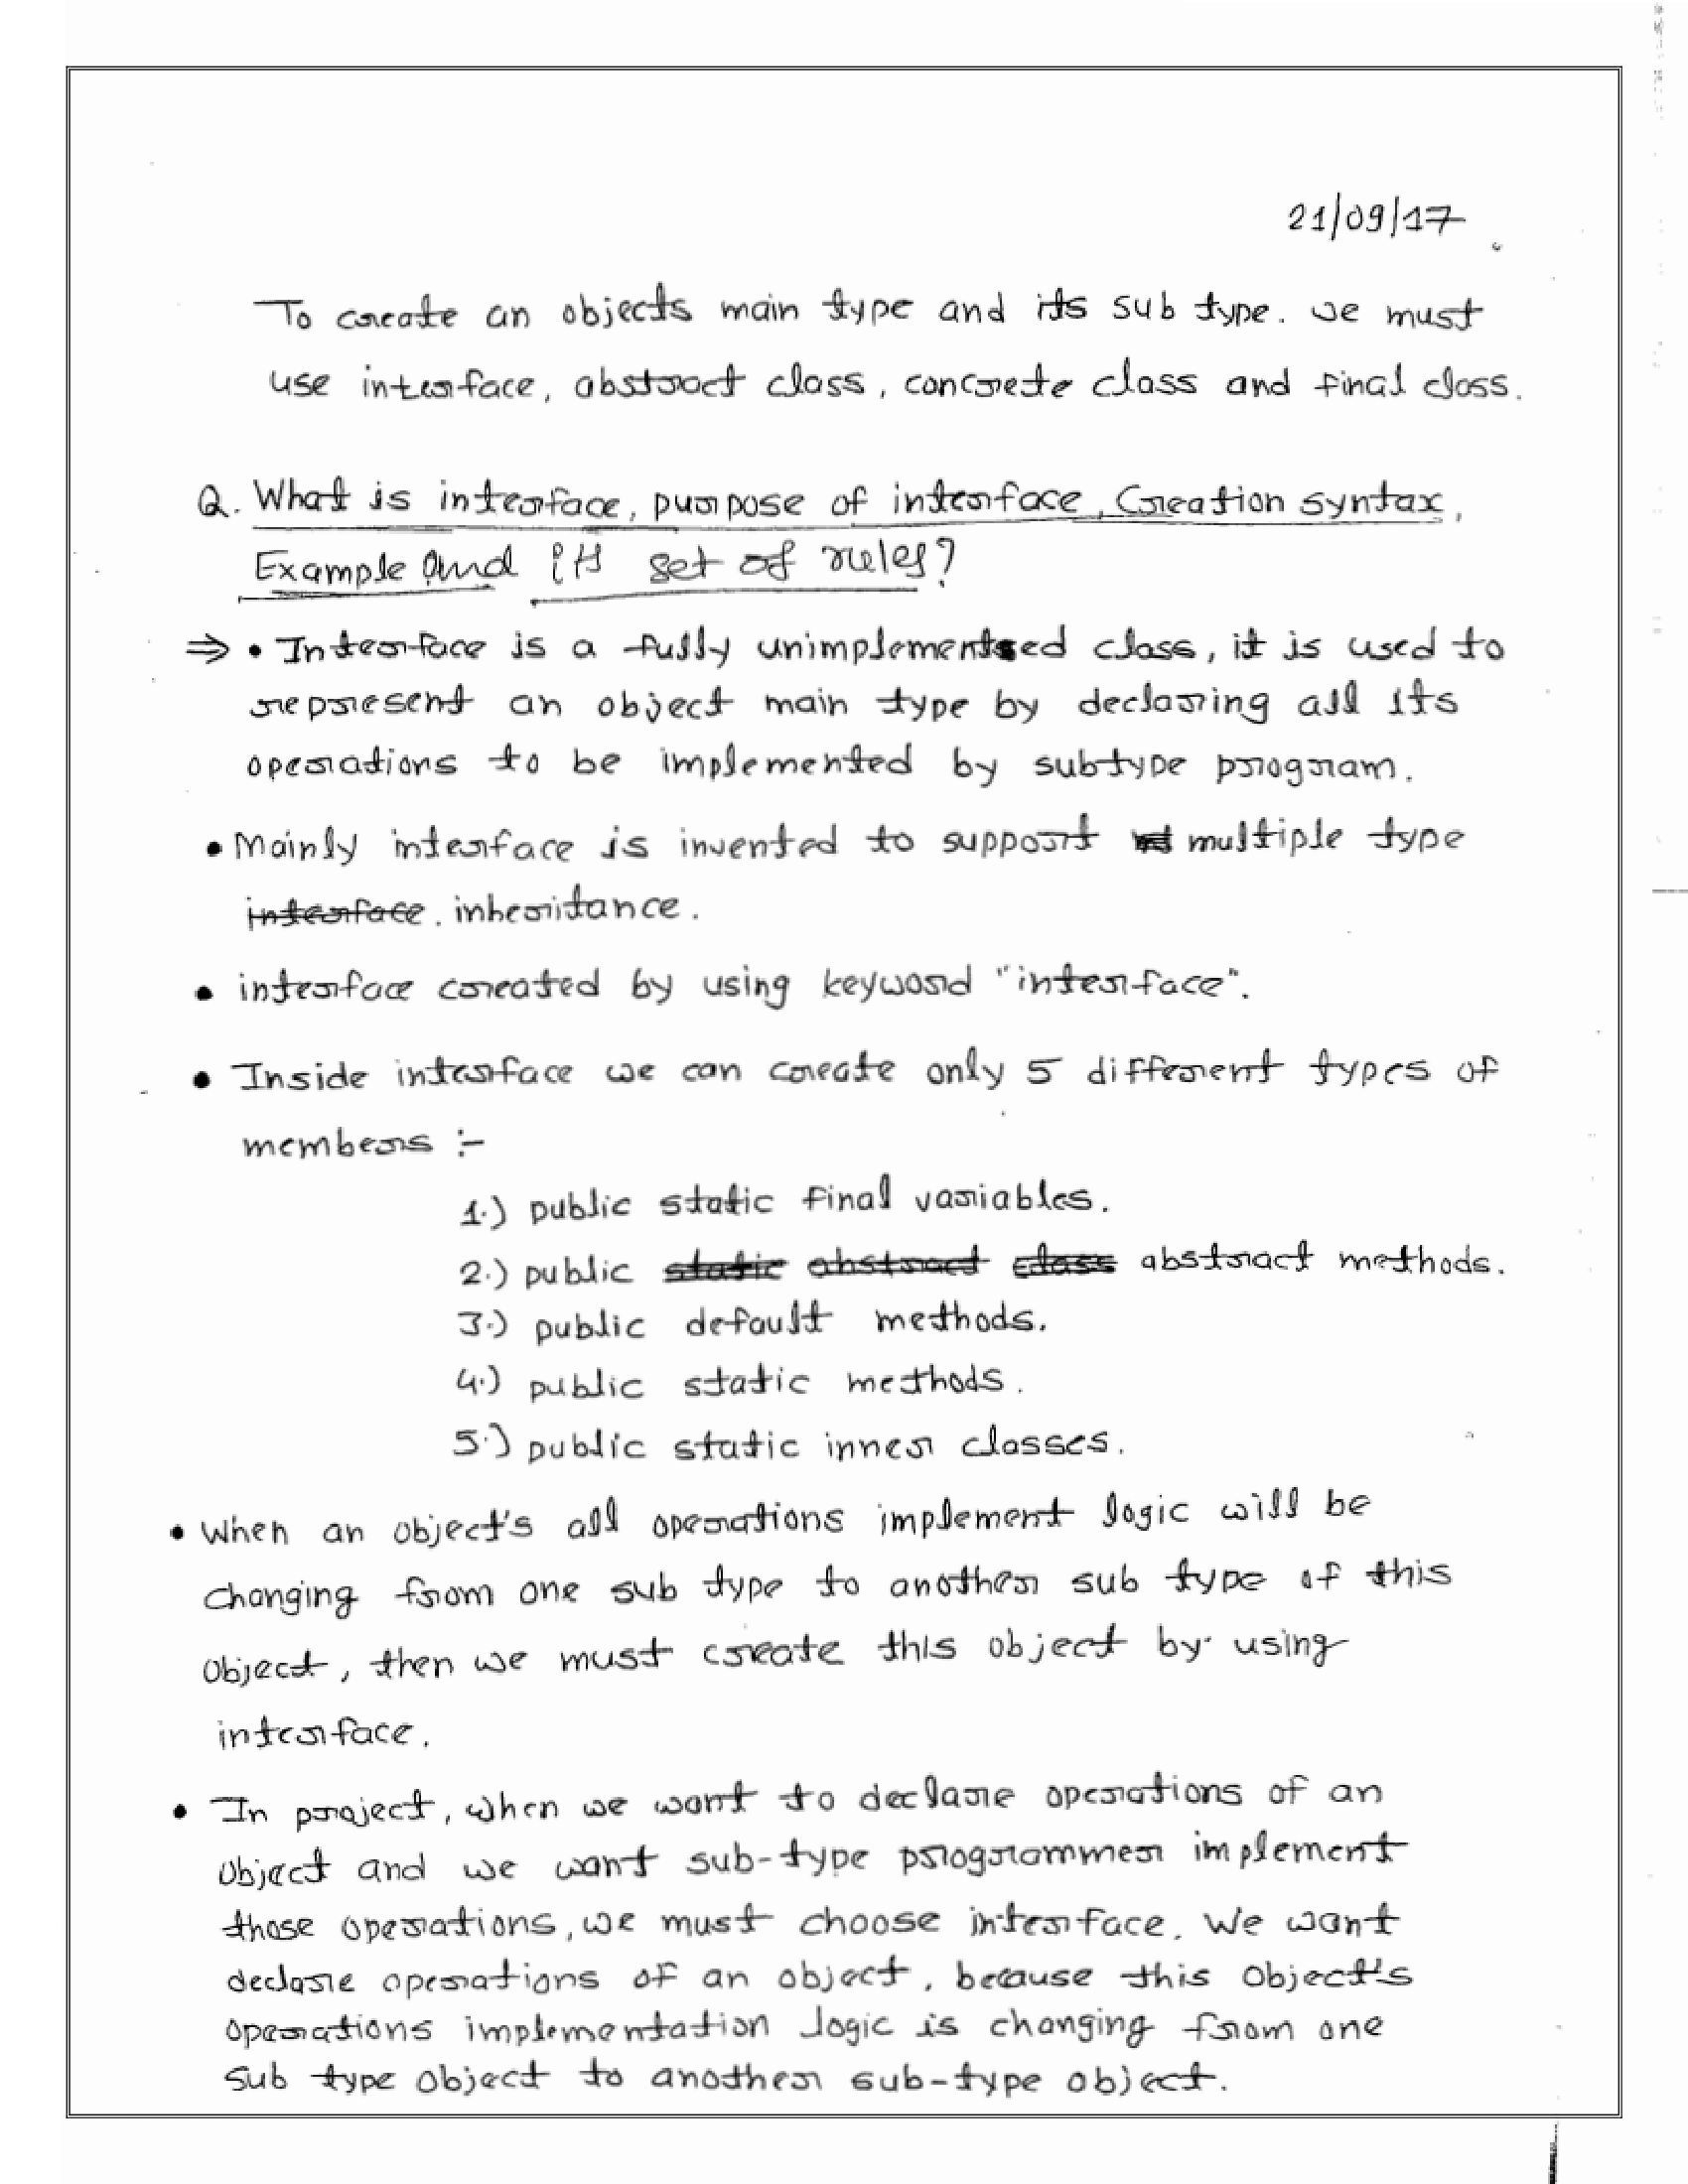 21/09/17
To create an objects main type and its sub type. we must
use interface, abstract class, concrete class and final class.
Q. What is interface, purpose of interface, Creation syntax,
Example and its set of rules?
⇒ • Interface is a fully unimplemented class, it is used to
represent an object main type by declaring all its
operations to be implemented by subtype program.
• Mainly interface is invented to support multiple type
interface. inheritance.
• interface created by using keyword "interface".
• Inside interface we can create only 5 different types of
members :-
1.) public static final variables.
2.) public static abstract class abstract methods.
3.) public default methods.
4.) public static methods.
5.) public static inner classes.
• When an object's all operations implement logic will be
changing from one sub type to another sub type of this
object, then we must create this object by using
interface.
• In project, when we want to declare operations of an
object and we want sub-type programmer implement
those operations, we must choose interface. We want
declare operations of an object, because this object's
operations implementation logic is changing from one
sub type object to another sub-type object.